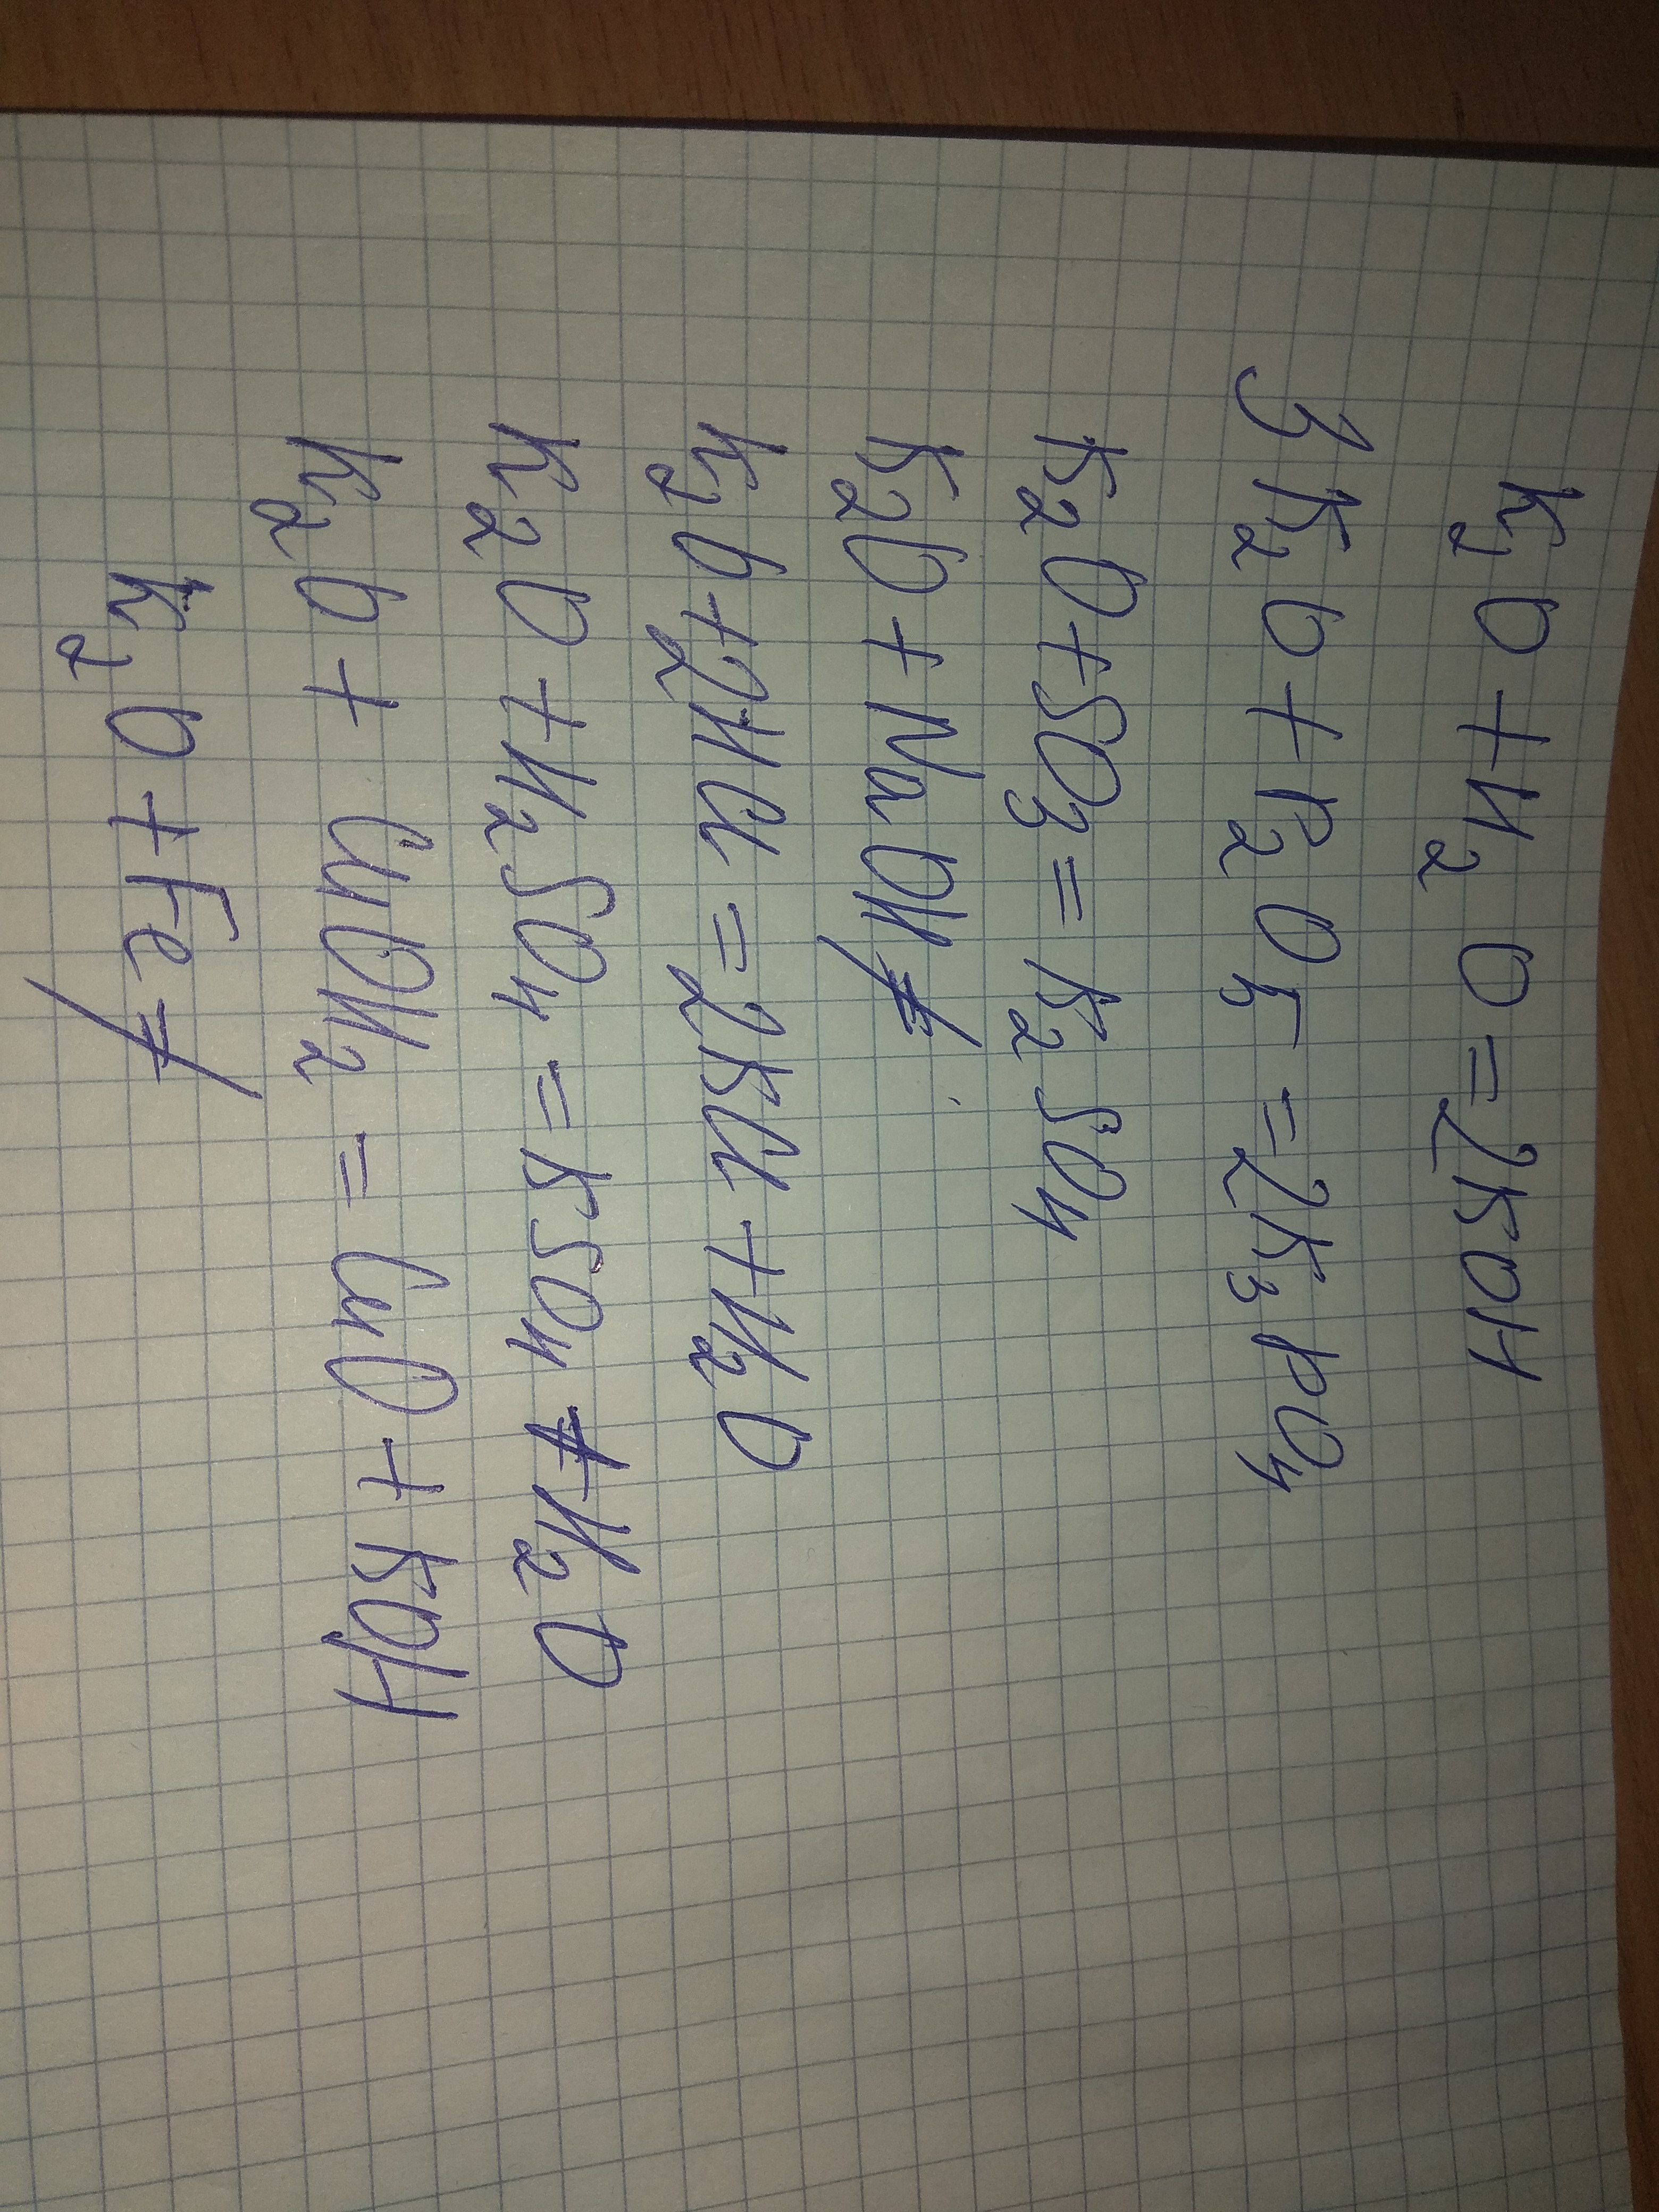 K₂O + H₂O = 2KOH
3K₂O + P₂O₅ = 2K₃PO₄
K₂O + SO₃ = K₂SO₄
K₂O + NaOH ≠
K₂O + 2HCl = 2KCl + H₂O
K₂O + H₂SO₄ = KSO₄ + H₂O
K₂O + CuOH₂ = CuO + KOH
K₂O + Fe ≠